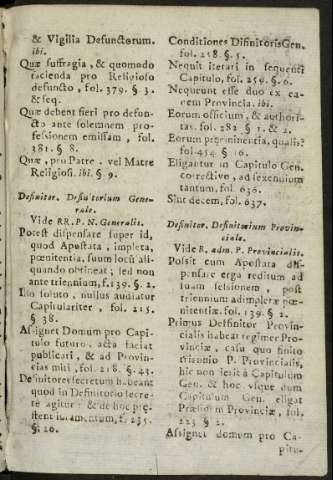 & Vigilia Defunctorum.
ibi.
Quæ suffragia, & quomodo
facienda pro Religioso
defuncto, fol. 379. §. 3.
& seq.
Quæ debent fieri pro defun-
cto ante solemnem pro-
fessionem emissam, fol.
381. § 8.
Quæ, pro Patre, vel Matre
Religiosi. ibi. § 9.
Definitor. Definitorium Gene-
rale.
Vide RR. P. N. Generalis.
Potest dispensare super id,
quod Apostata, impleta,
pœnitentia, suum locũ ali-
quando obtineat; sed non
ante triennium, f. 139. §. 2.
Illo soluto, nullus audiatur
Capitulariter, fol. 215.
§ 38.
Assignet Domum pro Capi-
tulo futuro. acta faciat
publicari, & ad Provin-
cias miti, fol. 218. §. 43.
Definitores secretum habeant
quod in Definitorio secre-
tè agitur: & de hoc præ-
stent iuramentum, f. 235.
§. 20.
Conditiones Difinitoris Gen.
fol. 218. §. 5.
Nequit iterari in sequenti
Capitulo, fol. 259. §. 6.
Nequeunt esse duo ex ea-
rem Provincia. ibi.
Eorum officium, & authori-
tas. fol. 282 §. 1. & 2.
Eorum præminentia, qualis?
fol. 454. § 16.
Eligantur in Capitulo Gen.
correctivo, ad sexennium
tantum, fol. 636.
Sint decem, fol. 637.
Definitor. Definitorium Provin-
ciale.
Vide R. adm. P. Provincialis.
Possit cum Apostata dis-
pensare erga reditum ad
suam sessionem, post
triennium adimpletæ pœ-
nitentiæ. fol. 139. §. 2.
Primus Deffinitor Provin-
cialis habeat regimen Pro-
vinciæ, casu quo finito
trienio P. Provincialis,
hic non ierit à Capitulum
Gen. & hoc vsque dum
Capitulum Gen. eligat
Præsidem Provinciæ, fol.
223 §. 2.
Assignet domum pro Ca-
pitu-